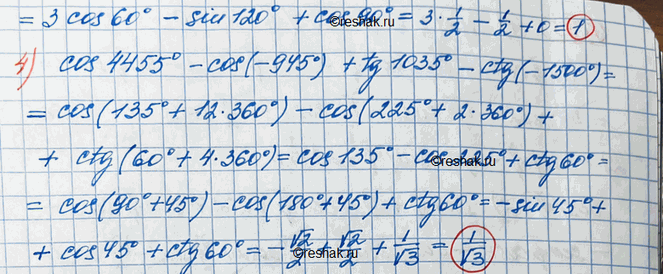 = 3 cos 60° - sin 120° + cos 90° = 3 · 1/2 - 1/2 + 0 = 1
4) cos 4455° - cos(-945°) + tg 1035° - ctg(-1500°) =
= cos(135° + 12·360°) - cos(225° + 2·360°) +
+ ctg(60° + 4·360°) = cos 135° - cos 225° + ctg 60° =
= cos(90° + 45°) - cos(180° + 45°) + ctg 60° = - sin 45° +
+ cos 45° + ctg 60° = - √2/2 + √2/2 + 1/√3 = 1/√3
©reshak.ru
©reshak.ru
©reshak.ru